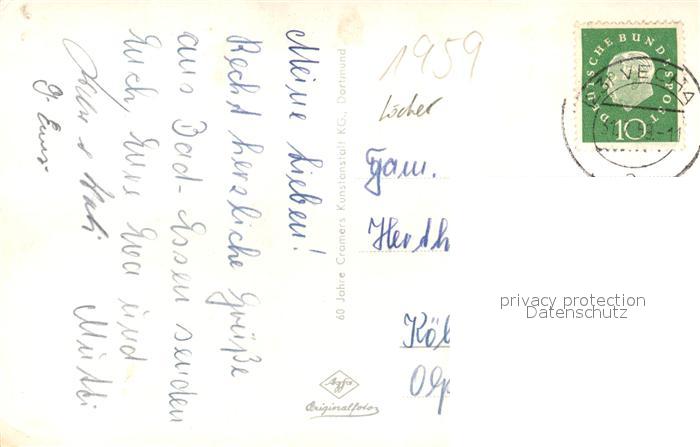 Meine Lieben!
Recht herzliche Grüße
aus Bad-Essen senden
Euch Eure Eva und
Mutti
60 Jahre Cramers Kunstanstalt KG., Dortmund
Agfa
Originalfoto
1959
Löcher
Fam.
Herth
Köl
Olp
DEUTSCHE BUNDESPOST
10
VECHTA
privacy protection
Datenschutz